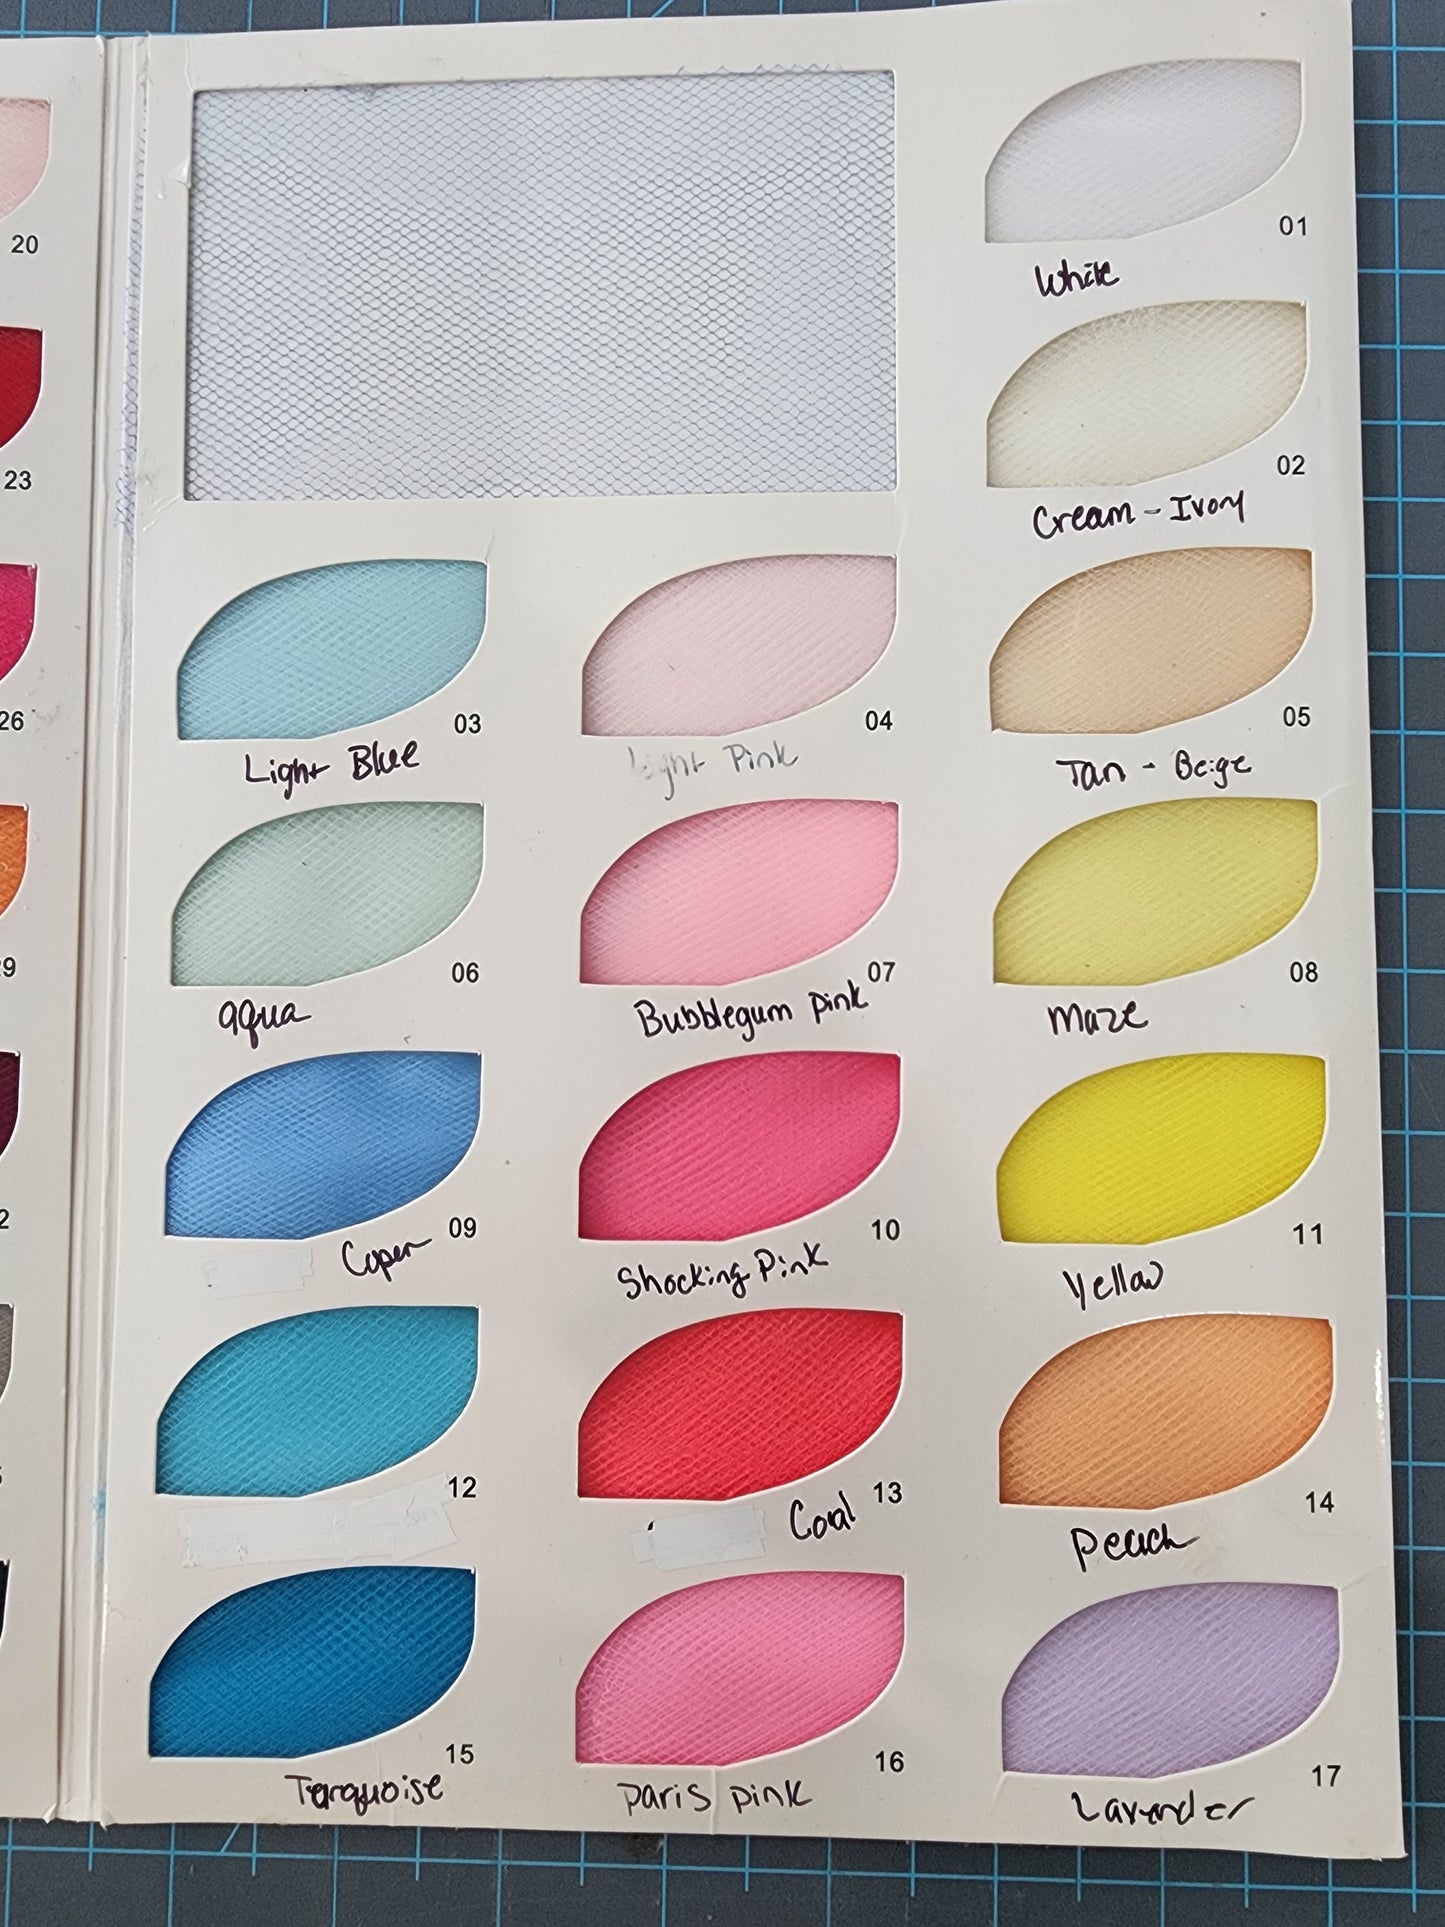 01
White
02
Cream - Ivory
20
23
26
03
Light Blue
04
Light Pink
05
Tan - Beige
06
aqua
07
Bubblegum pink
08
Maze
29
09
Copen
10
Shocking Pink
11
Yellow
2
12
13
Coral
14
Peach
15
Terquoise
16
paris pink
17
Lavender